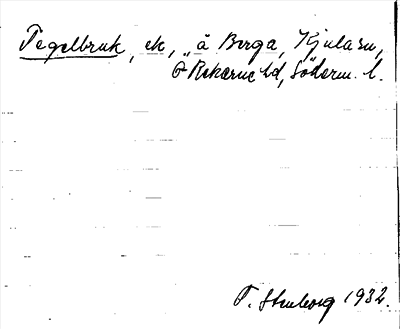 Tegelbruk, ek, „ å Berga, Kjula sn,
Ö Rekarne hd, Söderm. l.
F. Stenborg 1932.